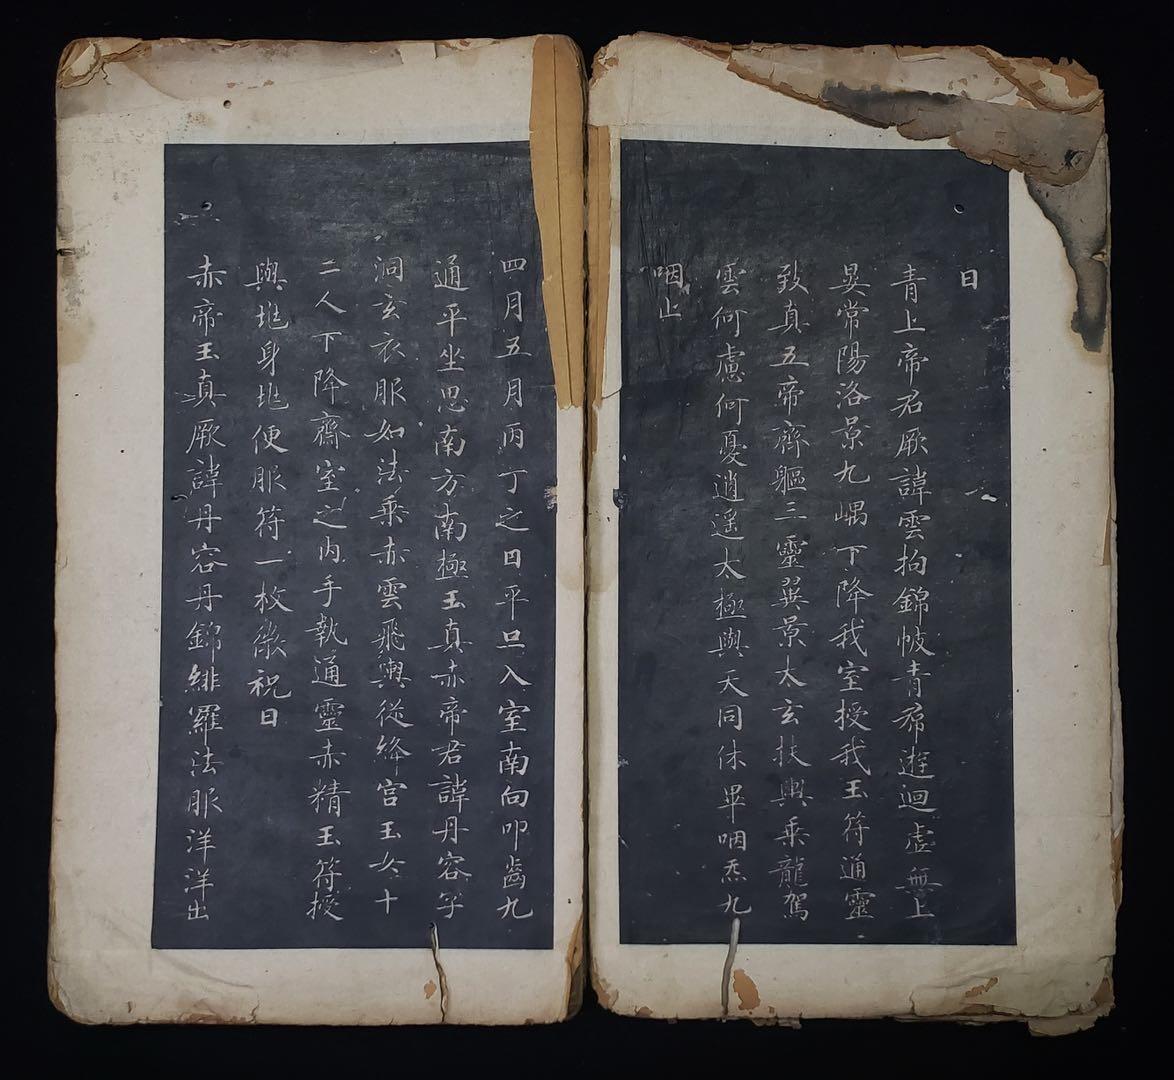 曰
青上帝君厥諱雲拘錦帔青帬遊迴虛無上
晏常陽洛景九嵎下降我室授我玉符通靈
致真五帝齊軀三靈翼景太玄扶輿乘龍駕
雲何慮何憂逍遥太極與天同休畢咽炁九
咽止
四月五月丙丁之日平旦入室南向叩齒九
通平坐思南方南極玉真赤帝君諱丹容字
洞玄衣服如法乘赤雲飛輿從絳宫玉女十
二人下降齋室之内手執通靈赤精玉符授
與地身地便服符一枚微祝曰
赤帝玉真厥諱丹容丹錦緋羅法服洋洋出